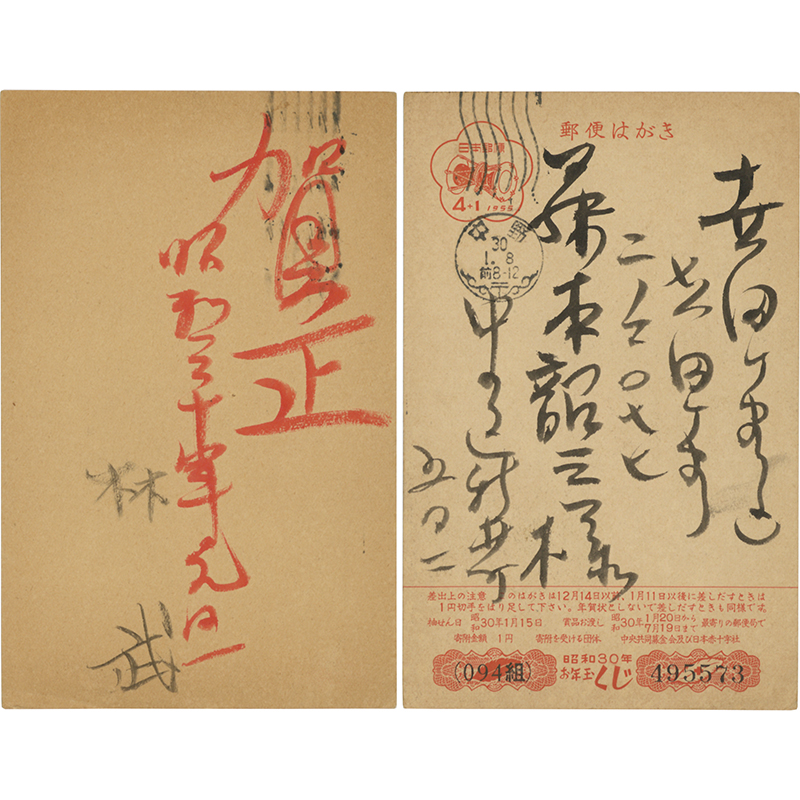 賀正
昭和三十年元旦
林
武
郵便はがき
日本郵便
4+1 1955
中野
30
1.8
前8-12
世田ヶ谷区
世田ヶ谷
藤本韶三様
中野区新井町
差出上の注意 このはがきは12月14日以前、1月11日以後に差しだすときは
1円切手をはり足して下さい。年賀状としないで差しだすときも同様です。
抽せん日 昭和30年1月15日 賞品お渡し 昭和30年1月20日から7月19日まで 最寄りの郵便局で
寄附金額 1円 寄附を受ける団体 中央共同募金会及び日本赤十字社
(094組)
昭和30年
お年玉くじ
495573